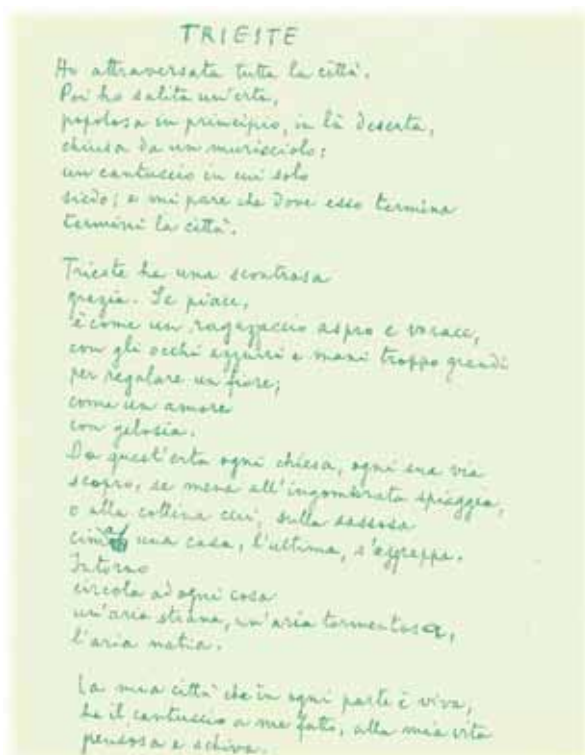 TRIESTE
Ho attraversata tutta la città.
Poi ho salita un'erta,
popolosa in principio, in là deserta,
chiusa da un muricciolo:
un cantuccio in cui solo
siedo; e mi pare che dove esso termina
termini la città.
Trieste ha una scontrosa
grazia. Se piace,
è come un ragazzaccio aspro e vorace,
con gli occhi azzurri e mani troppo grandi
per regalare un fiore;
come un amore
con gelosia.
Da quest'erta ogni chiesa, ogni sua via
scopro, se mena all'ingombrata spiaggia,
o alla collina cui, sulla sassosa
cima una casa, l'ultima, s'aggrappa.
Intorno
circola ad ogni cosa
un'aria strana, un'aria tormentosa,
l'aria natia.
La mia città che in ogni parte è viva,
ha il cantuccio a me fatto, alla mia vita
pensosa e schiva.